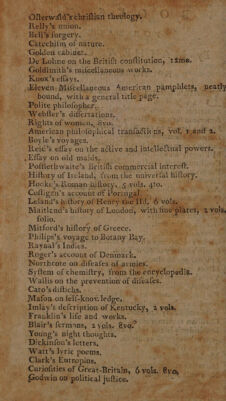 Osterwald's christian theology.
Relly's union.
Bell's surgery.
Catechism of nature.
Golden cabinet.
De Lolme on the British constitution, 12mo.
Goldsmith's miscellaneous works.
Knox's essays.
Eleven Miscellaneous American pamphlets, neatly
bound, with a general title page.
Polite philosopher.
Webster's dissertations.
Rights of women, 8vo.
American philosophical transactions, vol. 1 and 2.
Boyle's voyages.
Reid's essay on the active and intellectual powers.
Essay on old maids.
Postlethwaite's British commercial interest.
History of Ireland, from the universal history.
Hooke's Roman history, 5 vols. 4to.
Costigan's account of Portugal.
Leland's history of Henry the IId, 6 vols.
Maitland's history of London, with fine plates, 2 vols.
folio.
Mitford's history of Greece.
Philips's voyage to Botany Bay.
Raynal's Indies.
Roger's account of Denmark.
Northcote on diseases of armies.
System of chemistry, from the encyclopedia.
Wallis on the prevention of diseases.
Cato's distichs.
Mason on self-knowledge.
Imlay's description of Kentucky, 2 vols.
Franklin's life and works.
Blair's sermans, 2 vols. 8vo.
Young's night thoughts.
Dickinson's letters.
Watt's lyric poems.
Clark's Eutropius.
Curiosities of Great-Britain, 6 vols. 8vo,
Godwin on political justice.